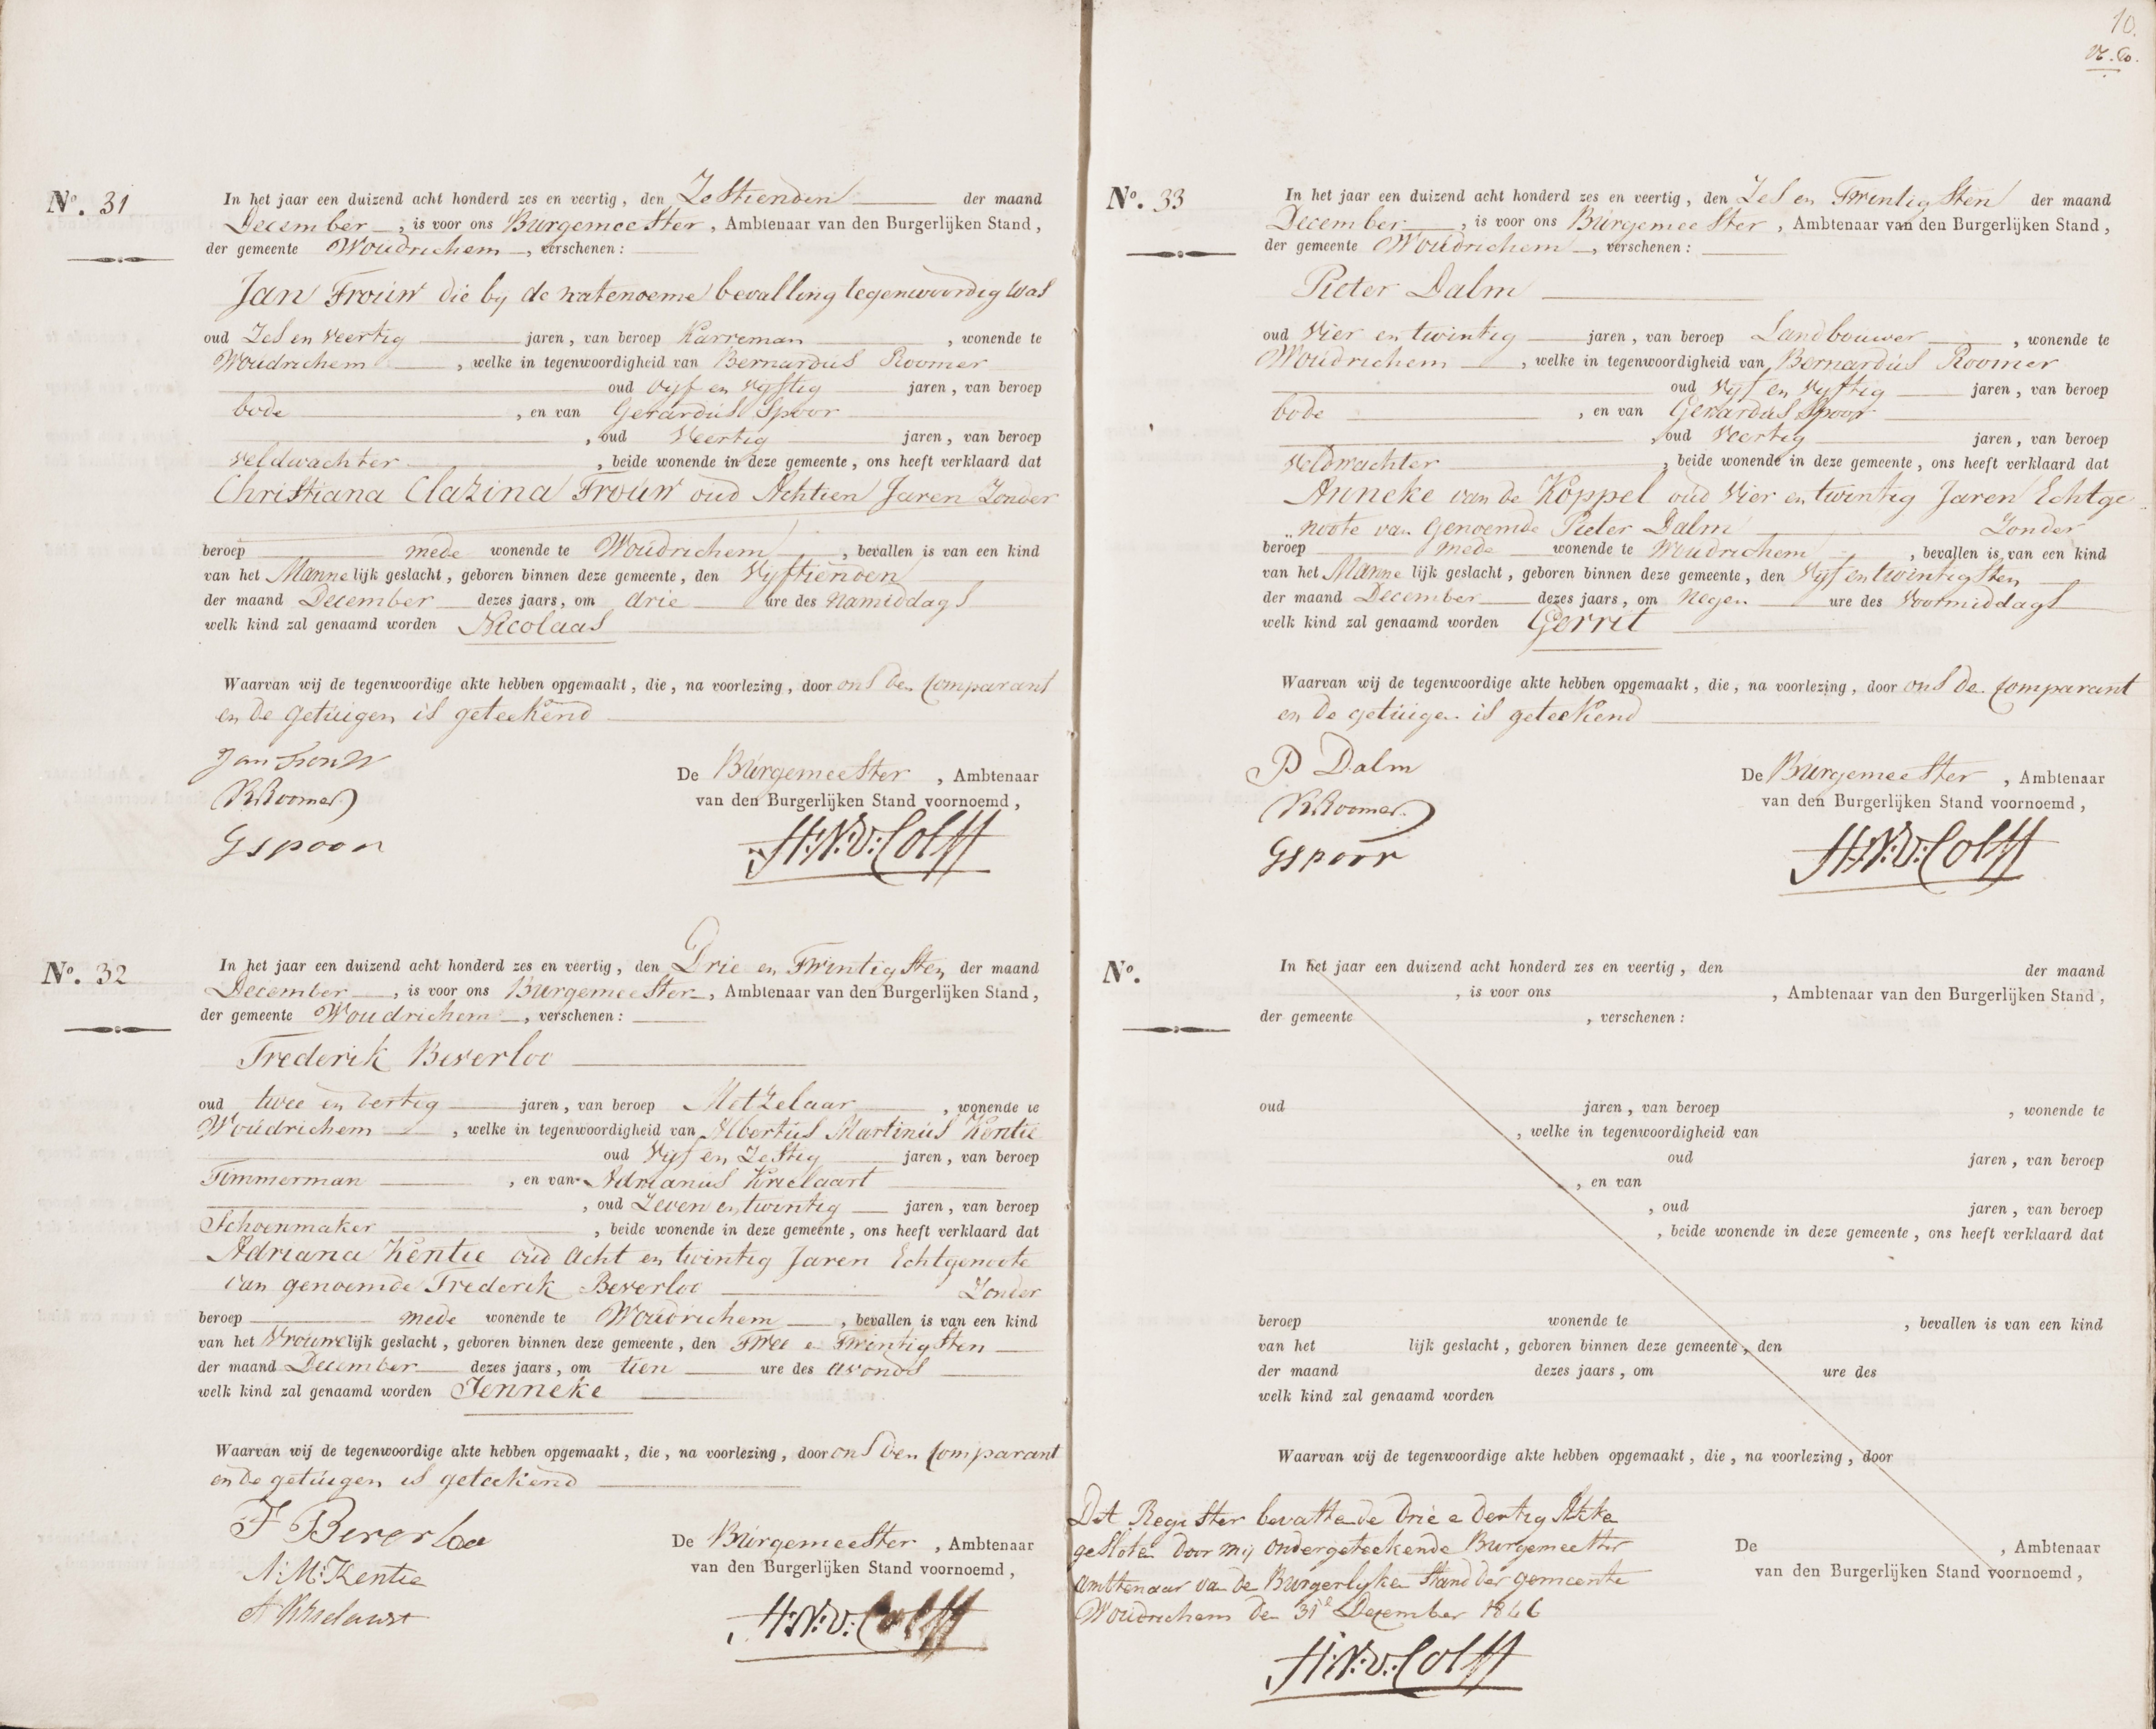 No. 31
In het jaar een duizend acht honderd zes en veertig, den Zestienden der maand
December, is voor ons Burgemeester, Ambtenaar van den Burgerlijken Stand,
der gemeente Woudrichem, verschenen:
Jan Trouw die by de natenoeme bevalling tegenwoordig was
oud Zes en Veertig jaren, van beroep Karreman, wonende te
Woudrichem, welke in tegenwoordigheid van Bernardus Roomer
oud Vyf en Vyftig jaren, van beroep
bode, en van Gerardus Spoor
, oud Veertig jaren, van beroep
Veldwachter, beide wonende in deze gemeente, ons heeft verklaard dat
Christiana Clazina Trouw oud Achtien Jaren Zonder
beroep mede wonende te Woudrichem, bevallen is van een kind
van het Mannelijk geslacht, geboren binnen deze gemeente, den Vyftienden
der maand December dezes jaars, om drie ure des namiddags
welk kind zal genaamd worden Nicolaas
Waarvan wij de tegenwoordige akte hebben opgemaakt, die, na voorlezing, door ons den Comparant
en de getuigen is geteekend
Jan Trouw
B Roomer
G Spoor
De Burgemeester, Ambtenaar
van den Burgerlijken Stand voornoemd,
H:N:v:Colff
No. 32
In het jaar een duizend acht honderd zes en veertig, den Drie en Twintigsten der maand
December, is voor ons Burgemeester, Ambtenaar van den Burgerlijken Stand,
der gemeente Woudrichem, verschenen:
Frederik Beverloo
oud twee en dertig jaren, van beroep Metzelaar, wonende te
Woudrichem, welke in tegenwoordigheid van Albertus Martinus Kentie
oud Vyf en Zestig jaren, van beroep
Timmerman, en van Adrianus Krielaart
, oud Zeven en twintig jaren, van beroep
Schoenmaker, beide wonende in deze gemeente, ons heeft verklaard dat
Adriana Kentie oud Acht en twintig Jaren Echtgenoote
van genoemde Frederik Beverloo Zonder
beroep mede wonende te Woudrichem, bevallen is van een kind
van het Vrouwelijk geslacht, geboren binnen deze gemeente, den Twee en Twintigsten
der maand December dezes jaars, om tien ure des avonds
welk kind zal genaamd worden Jenneke
Waarvan wij de tegenwoordige akte hebben opgemaakt, die, na voorlezing, door ons den Comparant
en de getuigen is geteekend
F Beverloo
A:M:Kentie
A Krielaart
De Burgemeester, Ambtenaar
van den Burgerlijken Stand voornoemd,
H:N:v:Colff
10.
No. 33
In het jaar een duizend acht honderd zes en veertig, den Zes en Twintigsten der maand
December, is voor ons Burgemeester, Ambtenaar van den Burgerlijken Stand,
der gemeente Woudrichem, verschenen:
Pieter Dalm
oud Vier en twintig jaren, van beroep Landbouwer, wonende te
Woudrichem, welke in tegenwoordigheid van Bernardus Roomer
oud Vyf en Vyftig jaren, van beroep
bode, en van Gerardus Spoor
, oud Veertig jaren, van beroep
Veldwachter, beide wonende in deze gemeente, ons heeft verklaard dat
Anneke van de Koppel oud Vier en twintig Jaren Echtge
„noote van Genoemde Pieter Dalm Zonder
beroep mede wonende te Woudrichem, bevallen is van een kind
van het Mannelijk geslacht, geboren binnen deze gemeente, den Vyf en twintigsten
der maand December dezes jaars, om Negen ure des Voormiddags
welk kind zal genaamd worden Gerrit
Waarvan wij de tegenwoordige akte hebben opgemaakt, die, na voorlezing, door ons de Comparant
en de getuigen is geteekend
P Dalm
B Roomer
G Spoor
De Burgemeester, Ambtenaar
van den Burgerlijken Stand voornoemd,
H:N:v:Colff
No.
In het jaar een duizend acht honderd zes en veertig, den der maand
, is voor ons , Ambtenaar van den Burgerlijken Stand,
der gemeente , verschenen:
oud jaren, van beroep , wonende te
, welke in tegenwoordigheid van
oud jaren, van beroep
, en van
, oud jaren, van beroep
, beide wonende in deze gemeente, ons heeft verklaard dat
beroep wonende te , bevallen is van een kind
van het lijk geslacht, geboren binnen deze gemeente, den
der maand dezes jaars, om ure des
welk kind zal genaamd worden
Waarvan wij de tegenwoordige akte hebben opgemaakt, die, na voorlezing, door
De , Ambtenaar
van den Burgerlijken Stand voornoemd,
Dit Register bevattende Drie en dertig Akten
gesloten door my ondergeteekende Burgemeester
ambtenaar van de Burgerlyken Stand der gemeente
Woudrichem den 31e December 1846
H:N:v:Colff